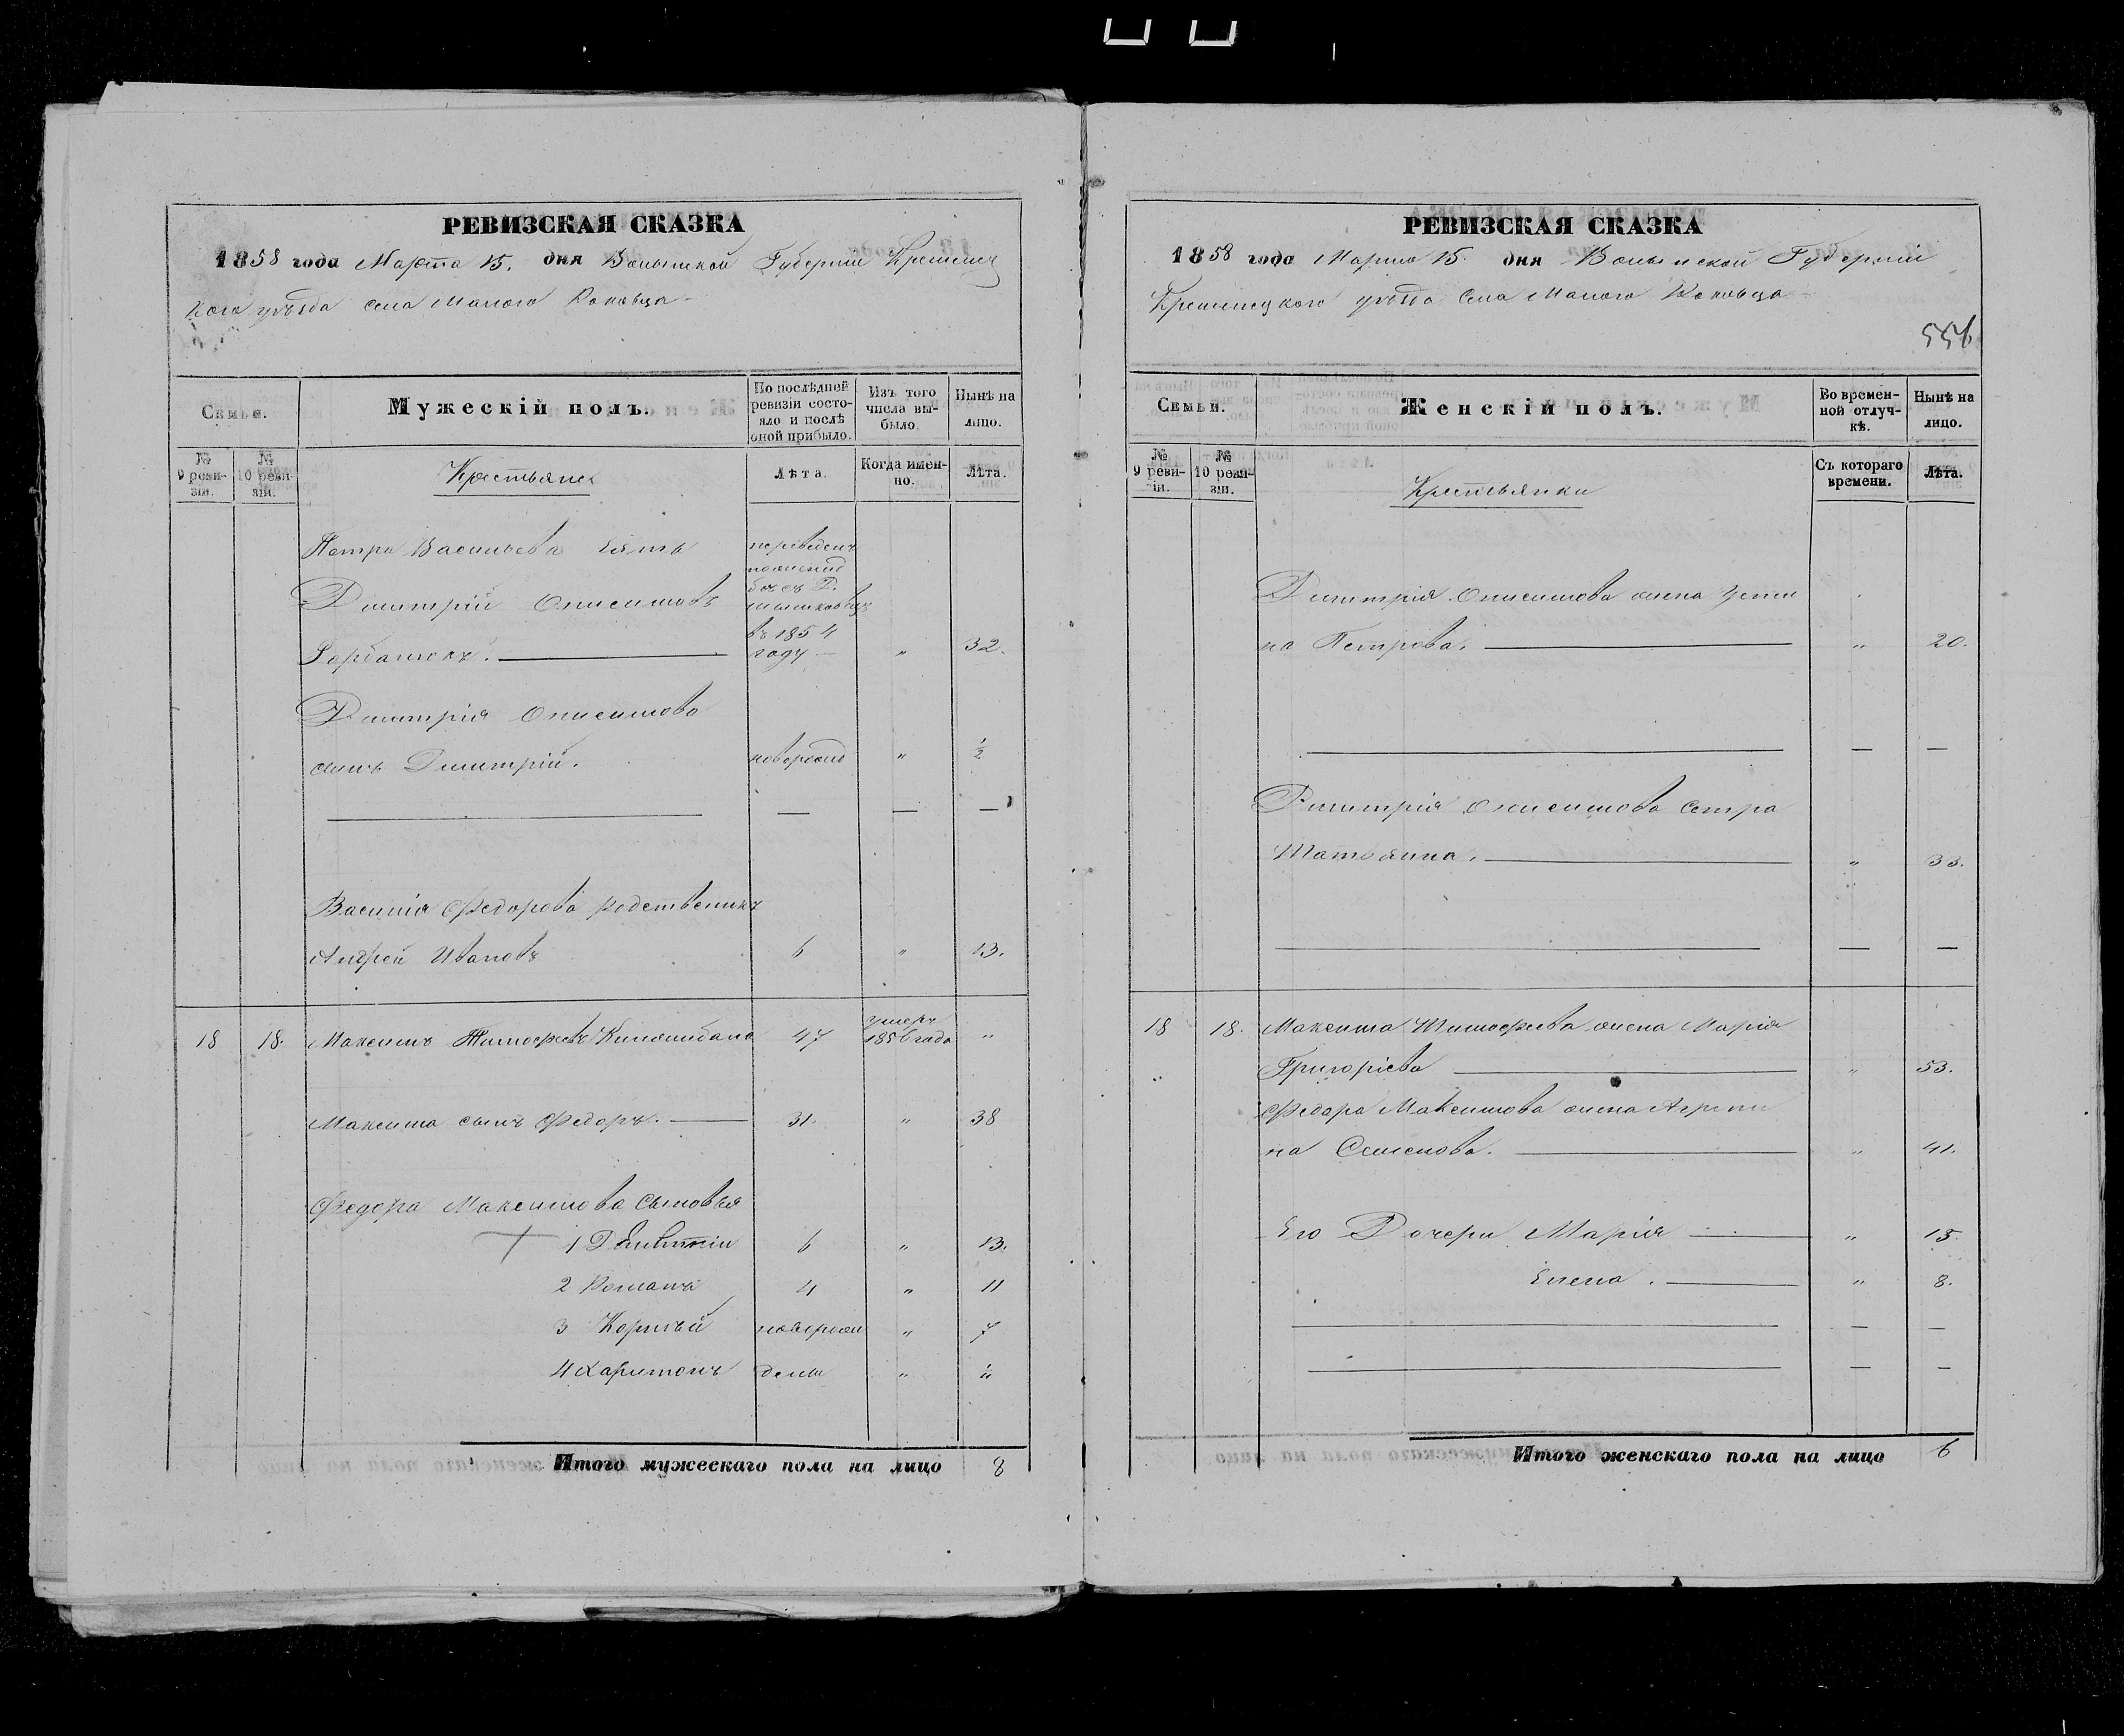 РЕВИЗСКАЯ СКАЗКА
1858 года Марта 15. дня Волынской Губерніи Кременец
кого уѣзда села Малого Коковца
Семьи.
Мужескій полъ.
По послѣдней ревизіи состояло и послѣ оной прибыло.
Изъ того числа выбыло.
Нынѣ на лицо.
№ 9 ревизіи.
№ 10 ревизіи.
Крестьяне
Лѣта.
Когда именно.
Лѣта.
Петра Васильева зять
переведенъ
Димитрій Онисимовъ
въ 1854
Горбатюкъ. году " 32.
Димитрія Онисимова
сынъ Димитрій. новорожд " ½
Василія Федорова родственикъ
Андрей Ивановъ 6 " 13.
18 18. Максимъ Тимофѣевъ 47 умеръ 1856 года "
Максима сынъ Федоръ. 31. " 38
Федора Максимова сыновья
1 6 " 13.
2 Романъ 4 " 11
3 Корнѣй новорож " 7
4 Харитонъ дены "
Итого мужескаго пола на лицо 8
РЕВИЗСКАЯ СКАЗКА
1858 года Марта 15. дня Волынской Губерніи
Кременецкого уѣзда Села Малого Коковца
556
Семьи.
Женскій полъ.
Во временной отлучкѣ.
Нынѣ на лицо.
№ 9 ревизіи.
№ 10 ревизіи.
Крестьянки
Съ котораго времени.
Лѣта.
Димитрія Онисимова жена Усти
на Петрова. " 20.
Димитрія Онисимова Сестра
Татіанна. " 33.
18 18. Максима Тимофѣева жена Марія
Григоріева " 53.
Федора Максимова жена Агрипи
на Семенова. " 41.
Его Дочери Марія " 15.
Елена. " 8.
Итого женскаго пола на лицо 6